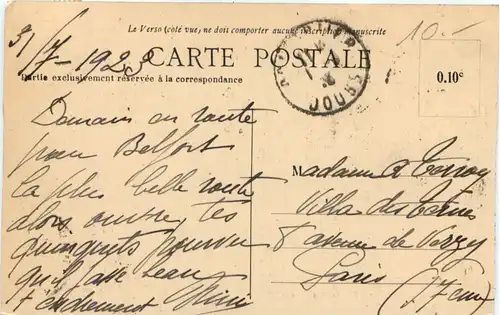 Le Verso (côté vue) ne doit comporter aucune inscription manuscrite
31/7-1928
CARTE POSTALE
10.-
Partie exclusivement réservée à la correspondance
0.10€
DOUBS
Demain en route
pour Belfort
la plus belle route
alors ouvre tes
quinquets pourvu
qu'il fasse beau
Tendrement
Madame
Villa des Ternes
8 avenue de Verzy
Paris
(17em)